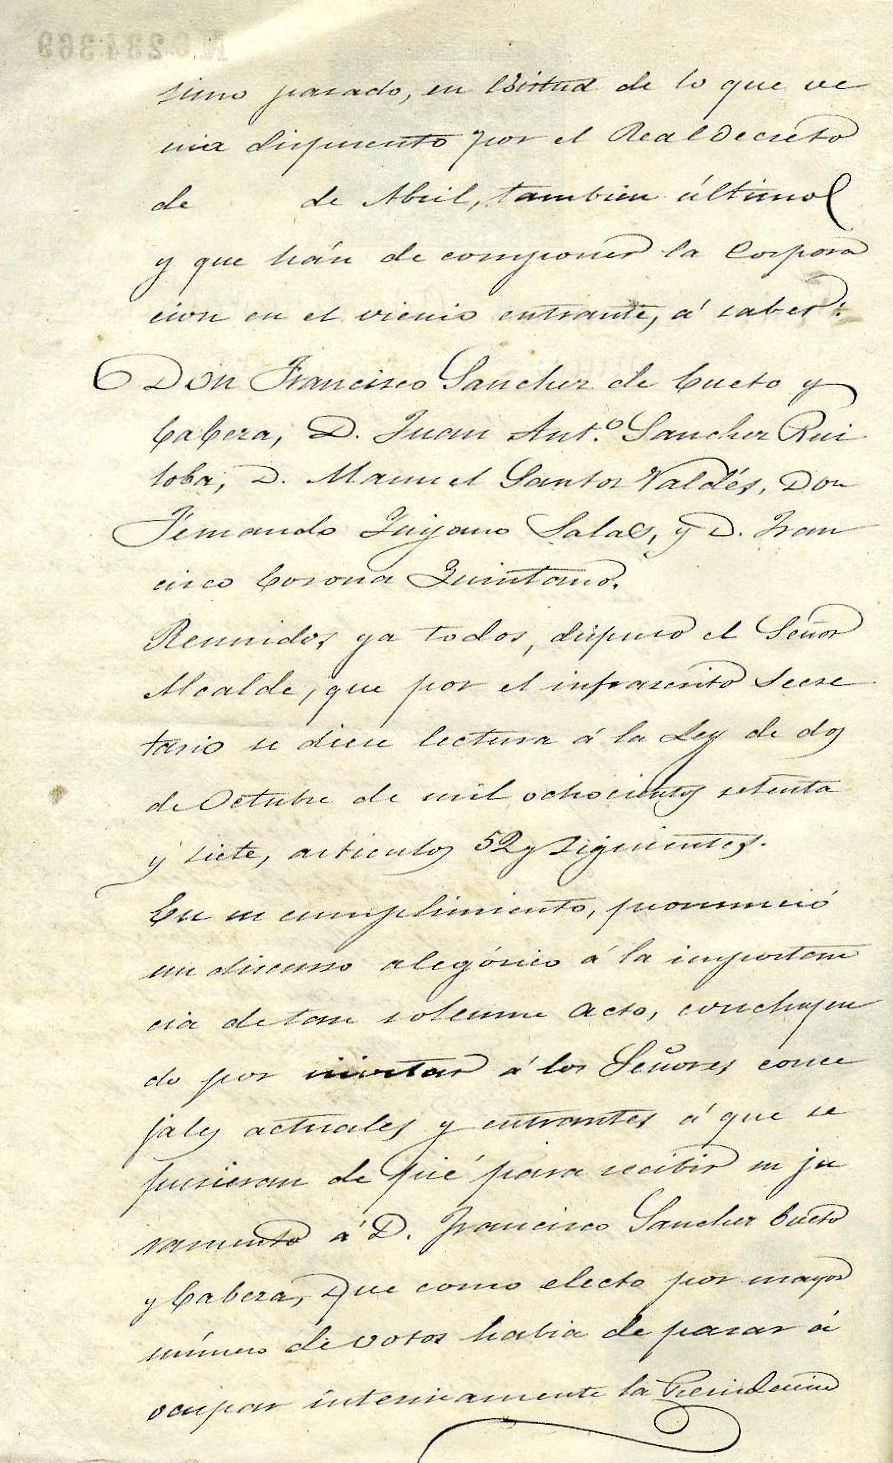 simo pasado, en Virtud de lo que ve
nia dispuesto por el Real Decreto
de de Abril, tambien último
y que hán de componer la Corpora
cion en el vienio entrante, á saber:
Don Francisco Sanchez de Cueto y
Cabeza, D. Juan Ant.º Sanchez Rui
loba, D. Manuel Santos Valdés, Don
Fernando Quijano Salas, y D. Fran
cisco Corona Quintano.
Reunidos ya todos, dispuso el Señor
Alcalde, que por el infrascrito Secre
tario se diese lectura á la Ley de dos
de Octubre de mil ochocientos setenta
y siete, articulos 52 y siguientes.
En su cumplimiento, pronunció
un discurso alegórico á la importan
cia de tan solemne acto, concluyen
do por invitar á los Señores conce
jales actuales y entrantes á que se
pusieran de pié para recibir su ju
ramento á D. Francisco Sanchez Cueto
y Cabeza, Que como electo por mayor
número de votos habia de pasar á
ocupar interinamente la Presidencia